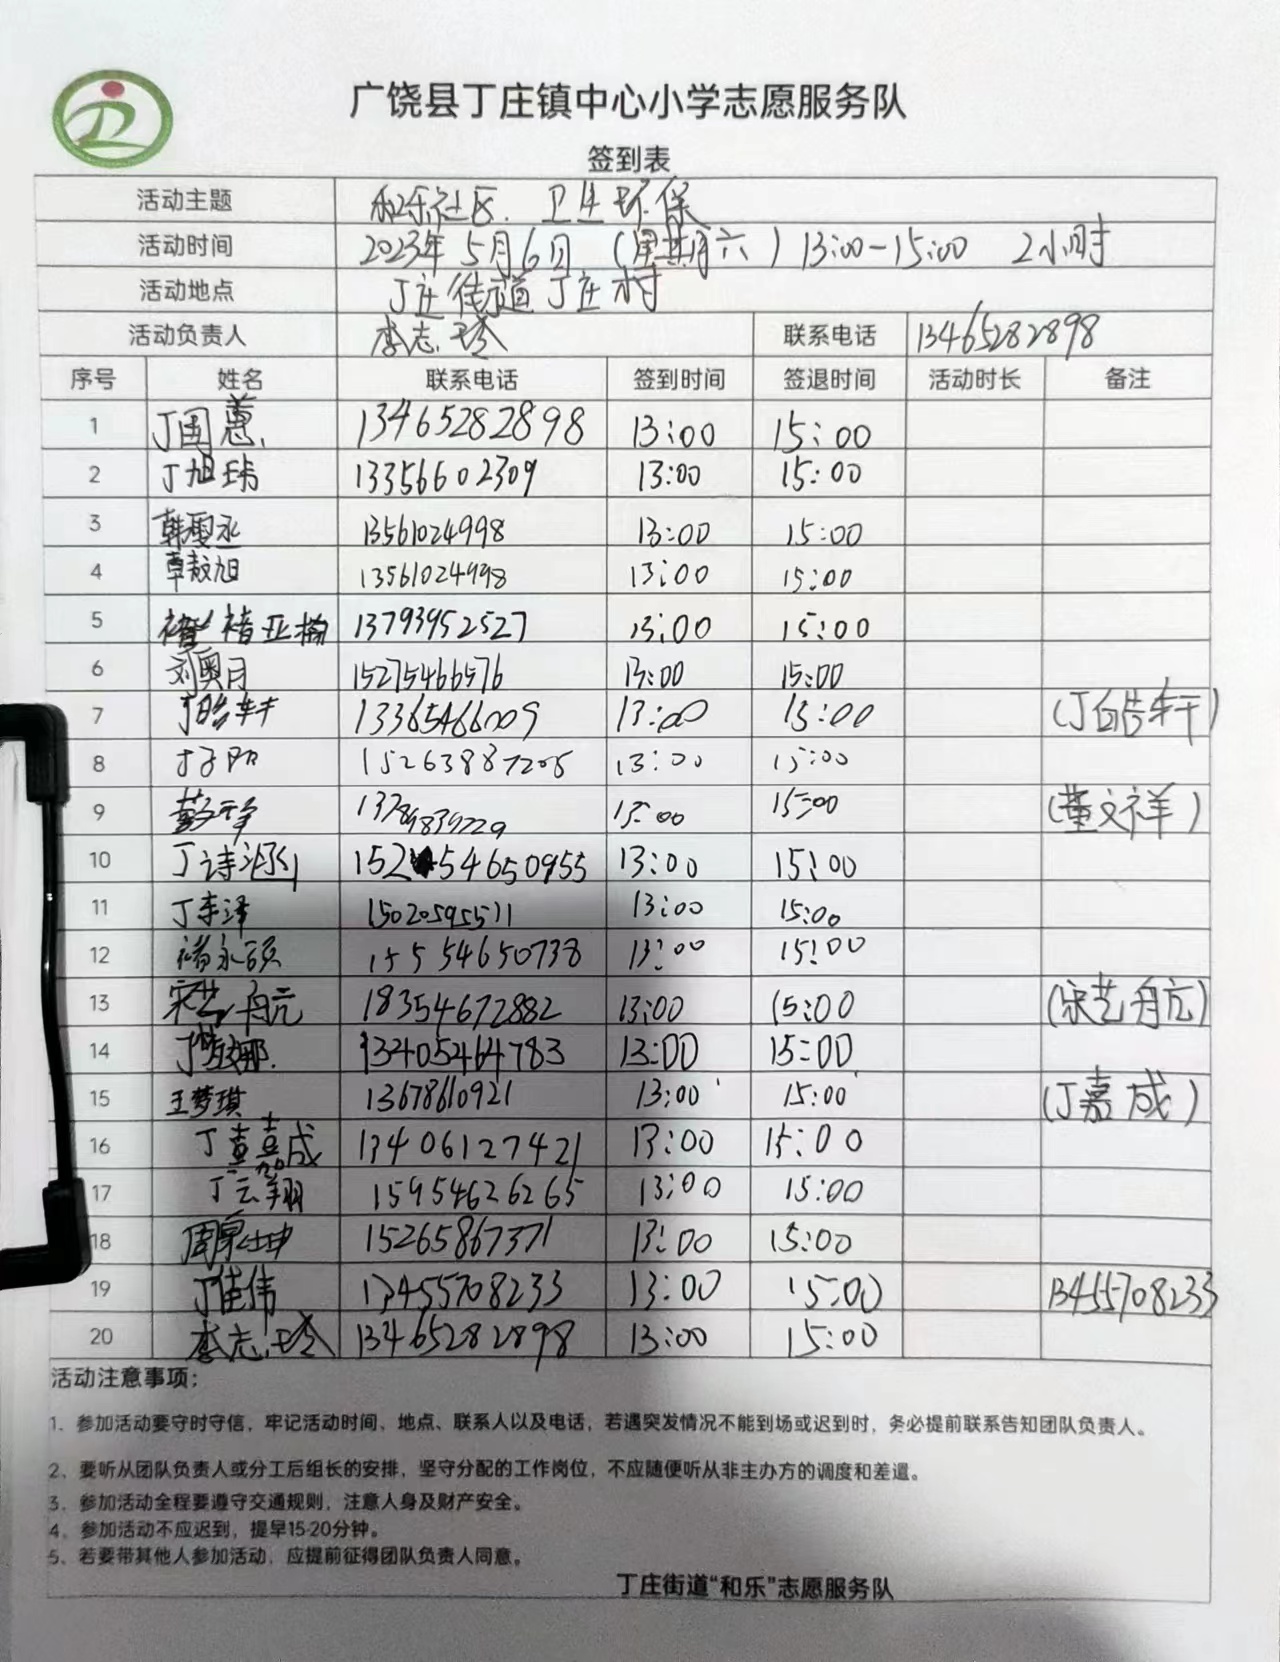 广饶县丁庄镇中心小学志愿服务队
签到表
活动主题 和乐社区. 卫生环保
活动时间 2023年5月6日 (星期六) 13:00-15:00 2小时
活动地点 丁庄街道丁庄村
活动负责人 李志玲 联系电话 13465282898
序号 姓名 联系电话 签到时间 签退时间 活动时长 备注
1 丁国蕙 13465282898 13:00 15:00
2 丁旭玮 13356602309 13:00 15:00
3 韩雯丞 13561024998 13:00 15:00
4 13561024998 13:00 15:00
5 褚亚楠 13793952527 13:00 15:00
6 刘奥月 15275466576 13:00 15:00
7 丁皓轩 13365466009 13:00 15:00 (丁皓轩)
8 15263887205 13:00 15:00
9 13:00 15:00 (董文祥)
10 丁诗涵 15254650955 13:00 15:00
11 丁来泽 15020595511 13:00 15:00
12 褚永硕 15554650738 13:00 15:00
13 宋艺航 18354672882 13:00 15:00 (宋艺航)
14 丁梦娜 13405464783 13:00 15:00
15 王梦琪 13678610921 13:00 15:00 (丁嘉成)
16 丁嘉成 13406127421 13:00 15:00
17 丁云翔 15954626265 13:00 15:00
18 15265867371 13:00 15:00
19 丁佳伟 13455708233 13:00 15:00 13455708233
20 李志玲 13465282898 13:00 15:00
活动注意事项:
1、参加活动要守时守信，牢记活动时间、地点、联系人以及电话，若遇突发情况不能到场或迟到时，务必提前联系告知团队负责人。
2、要听从团队负责人或分工后组长的安排，坚守分配的工作岗位，不应随便听从非主办方的调度和差遣。
3、参加活动全程要遵守交通规则，注意人身及财产安全。
4、参加活动不应迟到，提早15-20分钟。
5、若要带其他人参加活动，应提前征得团队负责人同意。
丁庄街道“和乐”志愿服务队